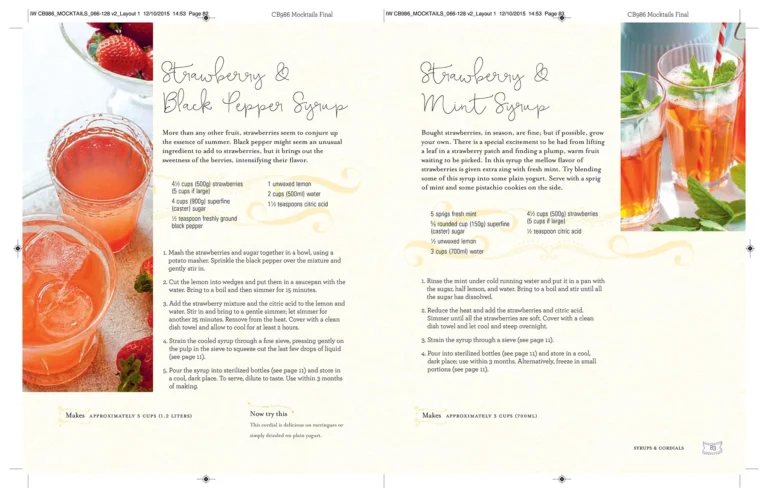 IW CB986_MOCKTAILS_066-128 v2_Layout 1 12/10/2015 14:53 Page 82
CB986 Mocktails Final
Strawberry &
Black Pepper Syrup
More than any other fruit, strawberries seem to conjure up
the essence of summer. Black pepper might seem an unusual
ingredient to add to strawberries, but it brings out the
sweetness of the berries, intensifying their flavor.
4½ cups (500g) strawberries
(5 cups if large)
4 cups (900g) superfine
(caster) sugar
½ teaspoon freshly ground
black pepper
1 unwaxed lemon
2 cups (500ml) water
1½ teaspoons citric acid
1. Mash the strawberries and sugar together in a bowl, using a
potato masher. Sprinkle the black pepper over the mixture and
gently stir in.
2. Cut the lemon into wedges and put them in a saucepan with the
water. Bring to a boil and then simmer for 15 minutes.
3. Add the strawberry mixture and the citric acid to the lemon and
water. Stir in and bring to a gentle simmer; let simmer for
another 25 minutes. Remove from the heat. Cover with a clean
dish towel and allow to cool for at least 2 hours.
4. Strain the cooled syrup through a fine sieve, pressing gently on
the pulp in the sieve to squeeze out the last few drops of liquid
(see page 11).
5. Pour the syrup into sterilized bottles (see page 11) and store in
a cool, dark place. To serve, dilute to taste. Use within 3 months
of making.
Makes APPROXIMATELY 5 CUPS (1.2 LITERS)
Now try this
This cordial is delicious on meringues or
simply drizzled on plain yogurt.
IW CB986_MOCKTAILS_066-128 v2_Layout 1 12/10/2015 14:53 Page 83
CB986 Mocktails Final
Strawberry &
Mint Syrup
Bought strawberries, in season, are fine; but if possible, grow
your own. There is a special excitement to be had from lifting
a leaf in a strawberry patch and finding a plump, warm fruit
waiting to be picked. In this syrup the mellow flavor of
strawberries is given extra zing with fresh mint. Try blending
some of this syrup into some plain yogurt. Serve with a sprig
of mint and some pistachio cookies on the side.
5 sprigs fresh mint
rounded cup (150g) superfine
(caster) sugar
½ unwaxed lemon
3 cups (700ml) water
4½ cups (500g) strawberries
(5 cups if large)
½ teaspoon citric acid
1. Rinse the mint under cold running water and put it in a pan with
the sugar, half lemon, and water. Bring to a boil and stir until all
the sugar has dissolved.
2. Reduce the heat and add the strawberries and citric acid.
Simmer until all the strawberries are soft. Cover with a clean
dish towel and let cool and steep overnight.
3. Strain the syrup through a sieve (see page 11).
4. Pour into sterilized bottles (see page 11) and store in a cool,
dark place; use within 3 months. Alternatively, freeze in small
portions (see page 11).
Makes APPROXIMATELY 3 CUPS (700ML)
SYRUPS & CORDIALS